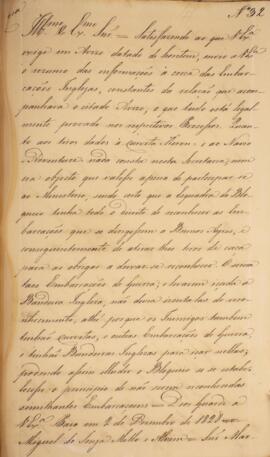 Nº 32
Illmo e Exmo Snr = Satisfazendo ao que V Exa
exige em Avizo datado de hontem, envio a V Exa
o resumo das informações á cerca das Embar-
cações Inglezas, constantes da relação que acom-
panhava o citado Avizo, o que tudo está legal-
mente provado nos respectivos Processos. Quan-
to aos tiros dados á Curveta Heron = e ao Navio
= Adventure nada consta nesta Secretaria; nem
era objecto que valesse a pena de participar-se
ao Ministerio, sendo certo que a Esquadra do Blo-
queio tenha todo o direito de reconhecer as Em-
barcações que se dirigissem a Buenos Ayres, e
conseguintemente de atirar-lhes tiros de caça
para as obrigar a deixar-se reconhecer. O serem
taes Embarcações de Guerra, e levarem içada á
Bandeira Ingleza, não devia izental-as do reco-
nhecimento, athé porque os Inimigos tambem
tinhão Curvetas, e outras Embarcações de Guerra,
e tinhão Bandeiras Inglezas para içar nellas;
podendo assim illudir o Bloqueio se se estabe-
lecesse o principio de não serem reconhecidas
semelhantes Embarcaçoens = Deos Guarde a
V Exa Paço em 2 de Dezembro de 1828 =
Miguel de Souza Mello e Alvim = Snr Mar-